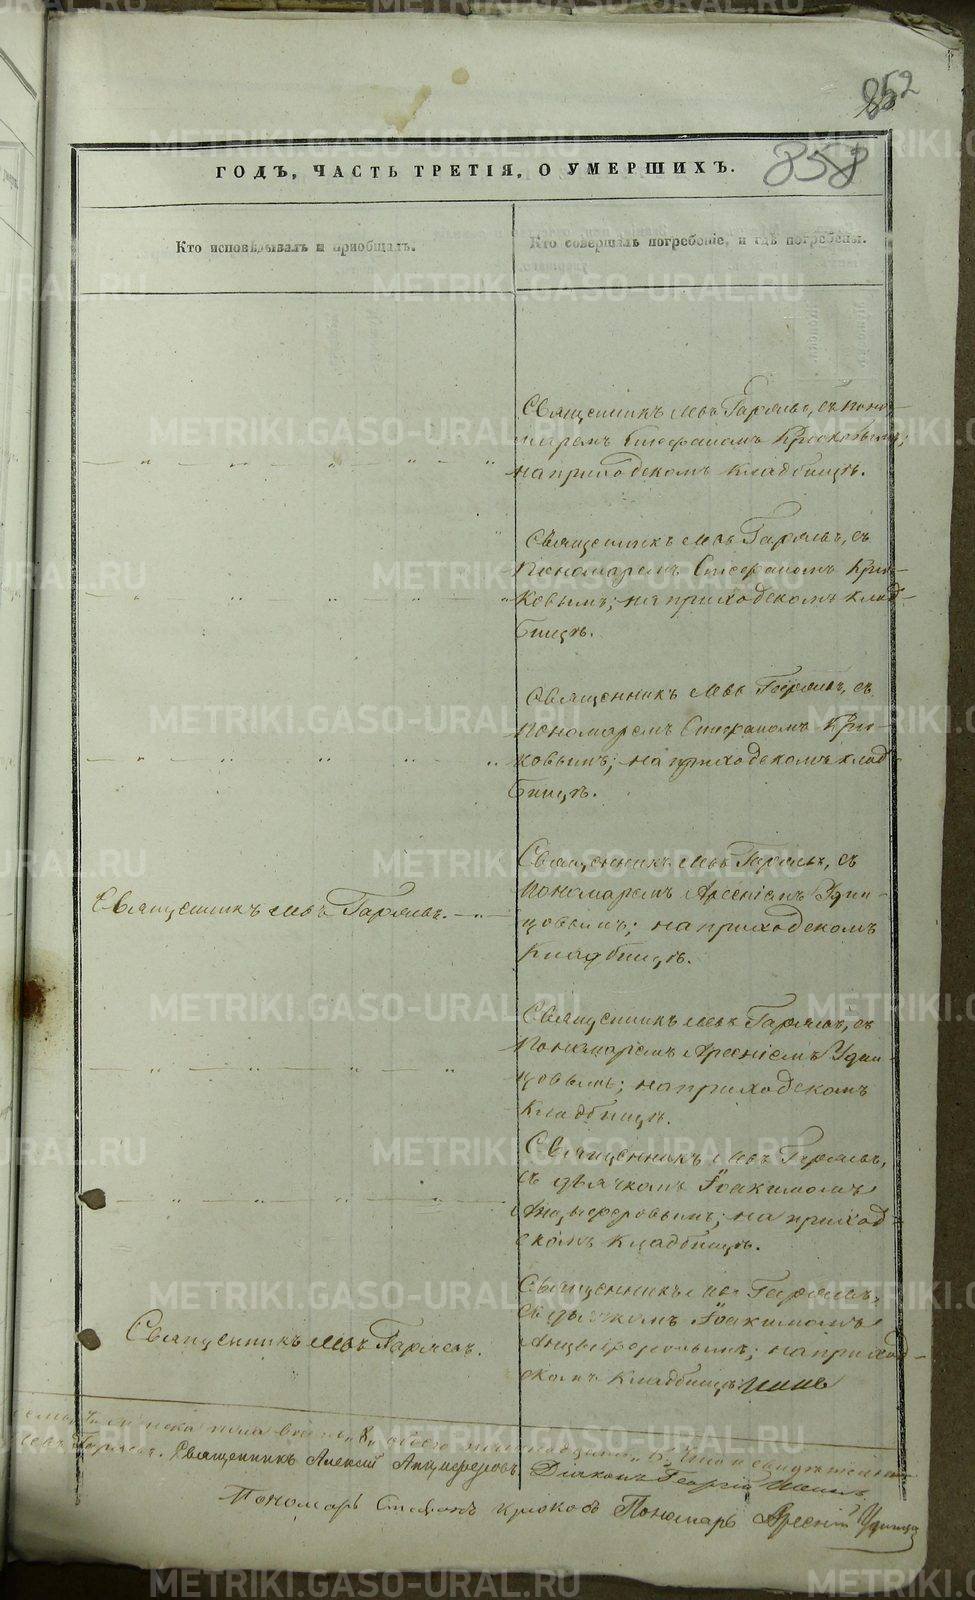 852
858
ГОДЪ, ЧАСТЬ ТРЕТІЯ, О УМЕРШИХЪ.
Кто исповѣдывалъ и пріобщалъ.
Кто совершалъ погребеніе, и гдѣ погребены.
Священникъ Левъ Гаряевъ, съ поно-
маремъ Стефаномъ Крюковымъ;
на приходскомъ кладбищѣ.
Священникъ Левъ Гаряевъ, съ
Пономаремъ Стефаномъ Крю-
ковымъ; на приходскомъ клад-
бищѣ.
Священникъ Левъ Гаряевъ, съ
Пономаремъ Стефаномъ Крю-
ковымъ; на приходскомъ клад-
бищѣ.
Священникъ Левъ Гаряевъ.
Священникъ Левъ Гаряевъ, съ
Пономаремъ Арсеніемъ Удин-
цовымъ; на приходскомъ
Кладбищѣ.
Священникъ Левъ Гаряевъ, съ
Пономаремъ Арсеніемъ Удин-
цовымъ; на приходскомъ
Кладбищѣ.
Священникъ Левъ Гаряевъ,
съ дьячкомъ Іоакимомъ
Анцыферовымъ; на приход-
скомъ кладбищѣ.
Священникъ Левъ Гаряевъ.
Священникъ Левъ Гаряевъ,
съ дьячкомъ Іоакимомъ
Анцыферовымъ; на приход-
скомъ кладбищѣ
Левъ Гаряевъ. Священникъ Алексій Анцыферовъ Діаконъ Георгій
Пономарь Стефанъ Крюковъ Пономарь Арсеній Удинцо
METRIKI.GASO-URAL.RU